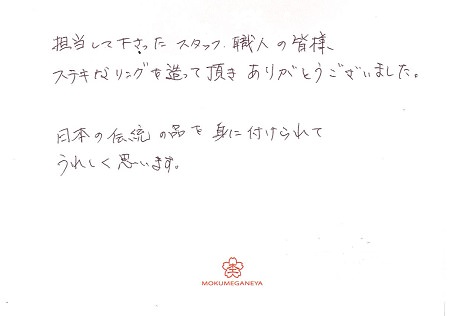 担当して下さった スタッフ、職人の皆様、
ステキなリングを造って頂き ありがとうございました。
日本の伝統の品を身に付けられて
うれしく思います。
MOKUMEGANEYA